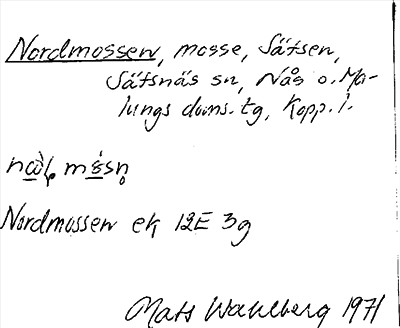 Nordmossen, mosse, Sätsen,
Sätsnäs sn, Nås o. Ma-
lungs doms.tg, Kopp.l.
Nordmossen ek 12E 3g
Mats Wahlberg 1971